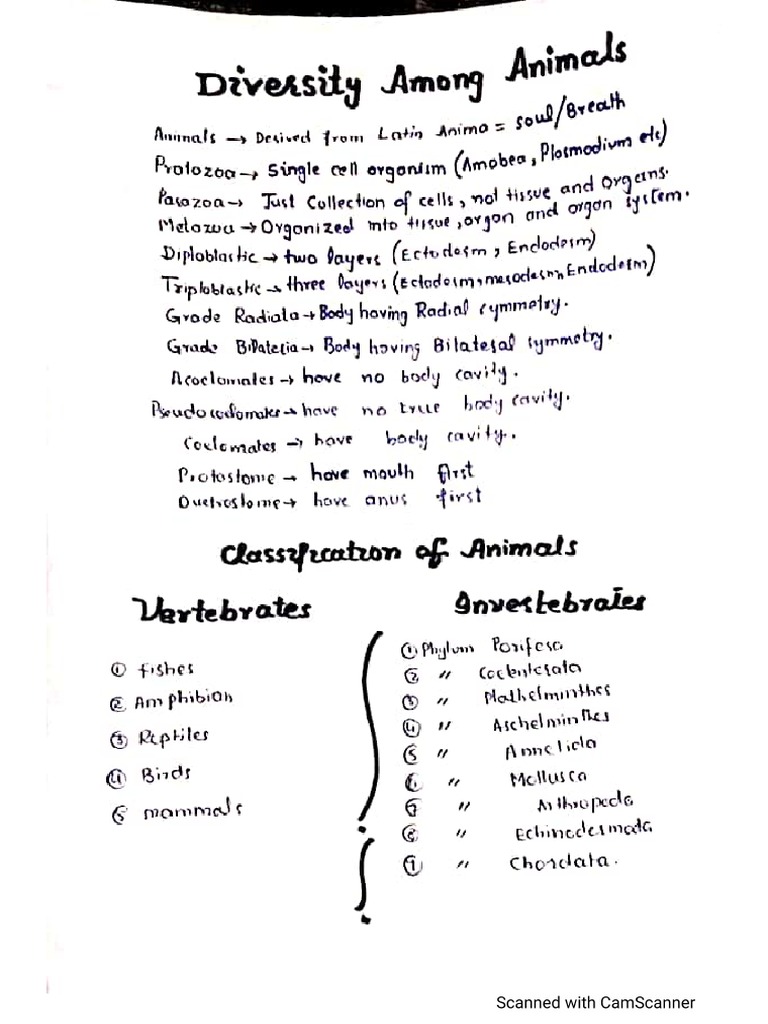 Diversity Among Animals
Animals → Desived from Latin Animo = Soul/Breath
Protozoa → Single cell organism (Amobea, Plasmodium etc)
Parozoa → Just Collection of cells, not tissue and Organs.
Metozoa → Organized into tissue, organ and organ system.
Diploblastic → two layers (Ectodesm, Endodesm)
Triploblastic → three layers (Ectodesm, mesodesm, Endoderm)
Grade Radiata → Body having Radial symmetry.
Grade Bilateria → Body having Bilatesal symmetry.
Acoelomates → have no body cavity.
Pseudocoelomates → have no true body cavity.
Coelomates → have body cavity.
Protostome → have mouth first
Duetrostome → have anus first
Classification of Animals
Vertebrates
① fishes
② Amphibian
③ Reptiles
④ Birds
⑤ mammals
Investebrates
① Phylum Porifesa
② " Coelentesata
③ " Plathelminthes
④ " Aschelminthes
⑤ " Annelida
⑥ " Mollusca
⑦ " Arthropoda
⑧ " Echinodesmata
① " Chordata.
Scanned with CamScanner